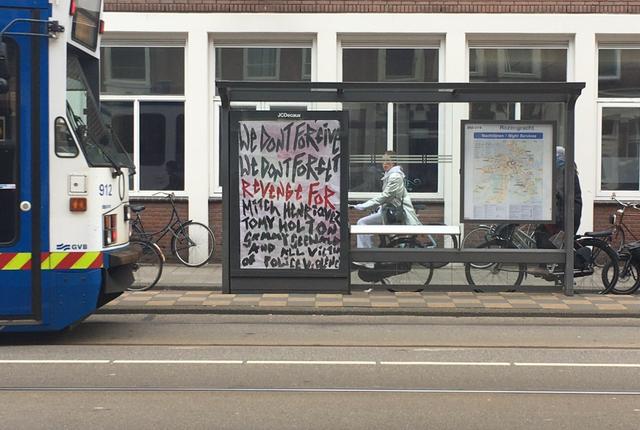 912
GVB
JCDecaux
WE DONT FORGIVE
WE DONT FORGET
REVENGE FOR
MITCH HENRIQUEZ
TOMY HOLTON
AND ALL VICTIMS
OF POLICE VIOLENCE
Rozengracht
Nachtlijnen / Night Services